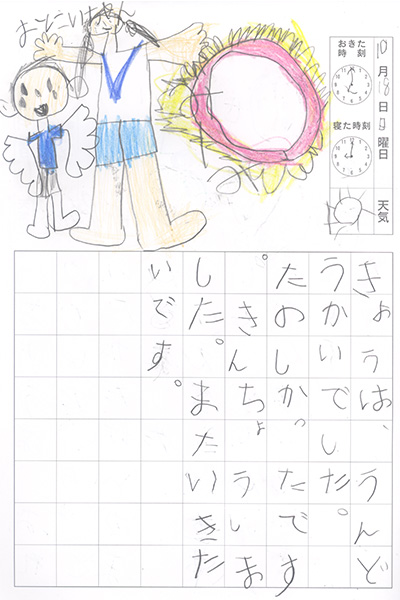 おきた時刻
寝た時刻
10月18日日曜日
天気
きょうは、うんど
うかいでした。
たのしかったです
。きんちょうしま
した。またいきた
いです。